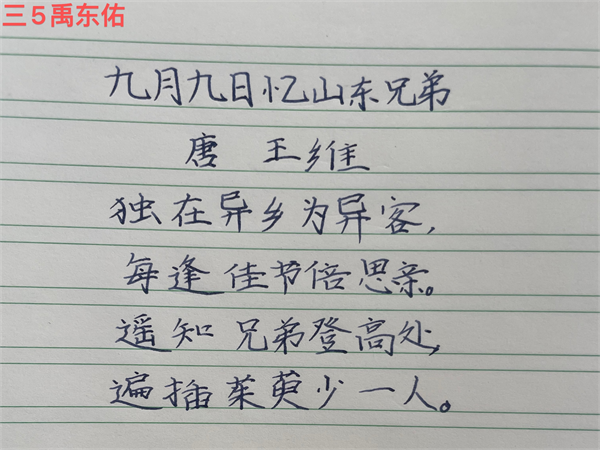 三5禹东佑
九月九日忆山东兄弟
唐 王维
独在异乡为异客,
每逢佳节倍思亲。
遥知兄弟登高处,
遍插茱萸少一人。